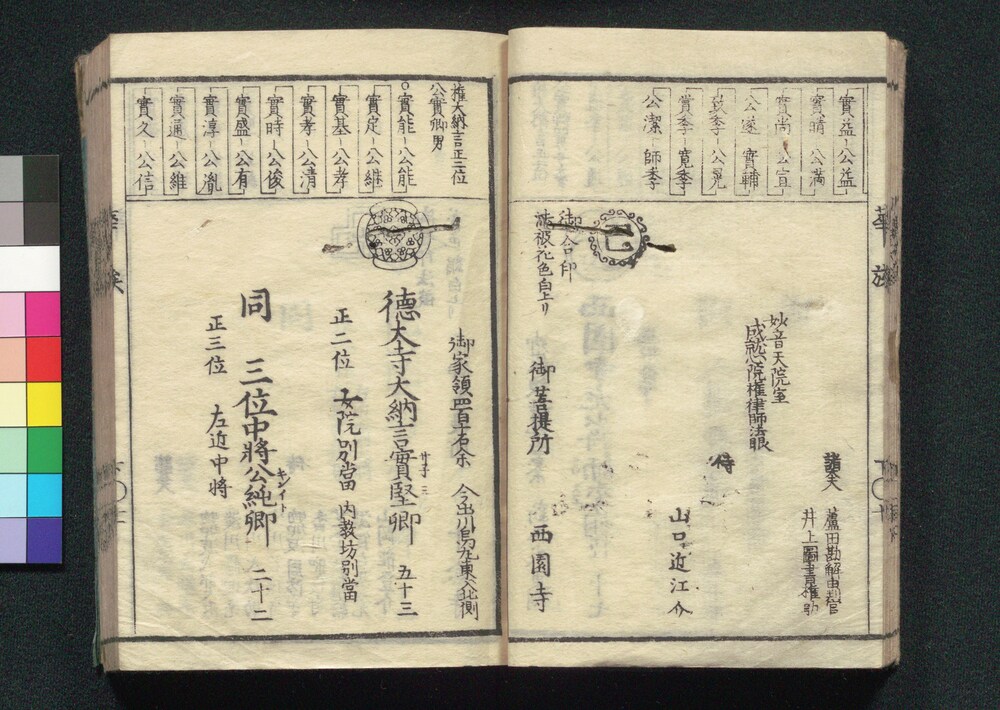 實益 公益
實晴 公満
實尚 公宣
公遂 實輔
致季 公晃
賞季 寛季
公潔 師季
華族
諸大夫
蘆田勘解由判官
井上圖書権助
妙音天院室
成就心院権律師法眼
侍
山口近江介
御合印
法被花色白上リ
御菩提所
西園寺
権大納言正二位
公實卿男
實能 公能
實定 公継
實基 公孝
實孝 公清
實時 公俊
實盛 公有
實淳 公胤
實通 公維
實久 公信
御家領四百十石余
今出川烏丸東入北側
德大寺大納言實堅卿 五十三
正二位 女院別當 内教坊別當
同 三位中將公純卿 二十二
キンイト
正三位 左近中将
華族